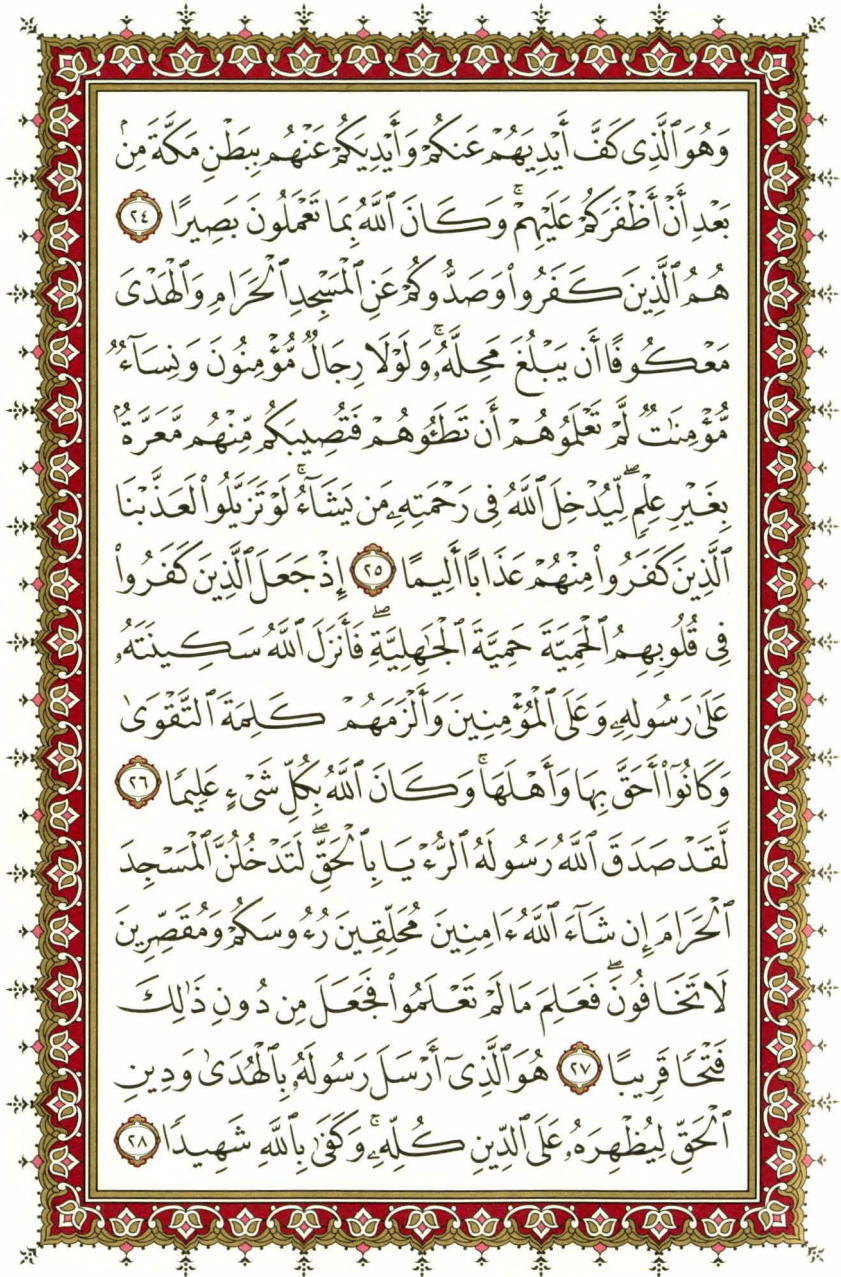 وَهُوَ ٱلَّذِى كَفَّ أَيْدِيَهُمْ عَنكُمْ وَأَيْدِيَكُمْ عَنْهُم بِبَطْنِ مَكَّةَ مِنۢ
بَعْدِ أَنْ أَظْفَرَكُمْ عَلَيْهِمْ ۚ وَكَانَ ٱللَّهُ بِمَا تَعْمَلُونَ بَصِيرًا ٢٤
هُمُ ٱلَّذِينَ كَفَرُوا۟ وَصَدُّوكُمْ عَنِ ٱلْمَسْجِدِ ٱلْحَرَامِ وَٱلْهَدْىَ
مَعْكُوفًا أَن يَبْلُغَ مَحِلَّهُۥ ۚ وَلَوْلَا رِجَالٌ مُّؤْمِنُونَ وَنِسَآءٌ
مُّؤْمِنَٰتٌ لَّمْ تَعْلَمُوهُمْ أَن تَطَـُٔوهُمْ فَتُصِيبَكُم مِّنْهُم مَّعَرَّةٌۢ
بِغَيْرِ عِلْمٍ ۖ لِّيُدْخِلَ ٱللَّهُ فِى رَحْمَتِهِۦ مَن يَشَآءُ ۚ لَوْ تَزَيَّلُوا۟ لَعَذَّبْنَا
ٱلَّذِينَ كَفَرُوا۟ مِنْهُمْ عَذَابًا أَلِيمًا ٢٥ إِذْ جَعَلَ ٱلَّذِينَ كَفَرُوا۟
فِى قُلُوبِهِمُ ٱلْحَمِيَّةَ حَمِيَّةَ ٱلْجَٰهِلِيَّةِ ۖ فَأَنزَلَ ٱللَّهُ سَكِينَتَهُۥ
عَلَىٰ رَسُولِهِۦ وَعَلَى ٱلْمُؤْمِنِينَ وَأَلْزَمَهُمْ كَلِمَةَ ٱلتَّقْوَىٰ
وَكَانُوٓا۟ أَحَقَّ بِهَا وَأَهْلَهَا ۚ وَكَانَ ٱللَّهُ بِكُلِّ شَىْءٍ عَلِيمًا ٢٦
لَّقَدْ صَدَقَ ٱللَّهُ رَسُولَهُ ٱلرُّءْيَا بِٱلْحَقِّ ۖ لَتَدْخُلُنَّ ٱلْمَسْجِدَ
ٱلْحَرَامَ إِن شَآءَ ٱللَّهُ ءَامِنِينَ مُحَلِّقِينَ رُءُوسَكُمْ وَمُقَصِّرِينَ
لَا تَخَافُونَ ۖ فَعَلِمَ مَا لَمْ تَعْلَمُوا۟ فَجَعَلَ مِن دُونِ ذَٰلِكَ
فَتْحًا قَرِيبًا ٢٧ هُوَ ٱلَّذِىٓ أَرْسَلَ رَسُولَهُۥ بِٱلْهُدَىٰ وَدِينِ
ٱلْحَقِّ لِيُظْهِرَهُۥ عَلَى ٱلدِّينِ كُلِّهِۦ ۚ وَكَفَىٰ بِٱللَّهِ شَهِيدًا ٢٨